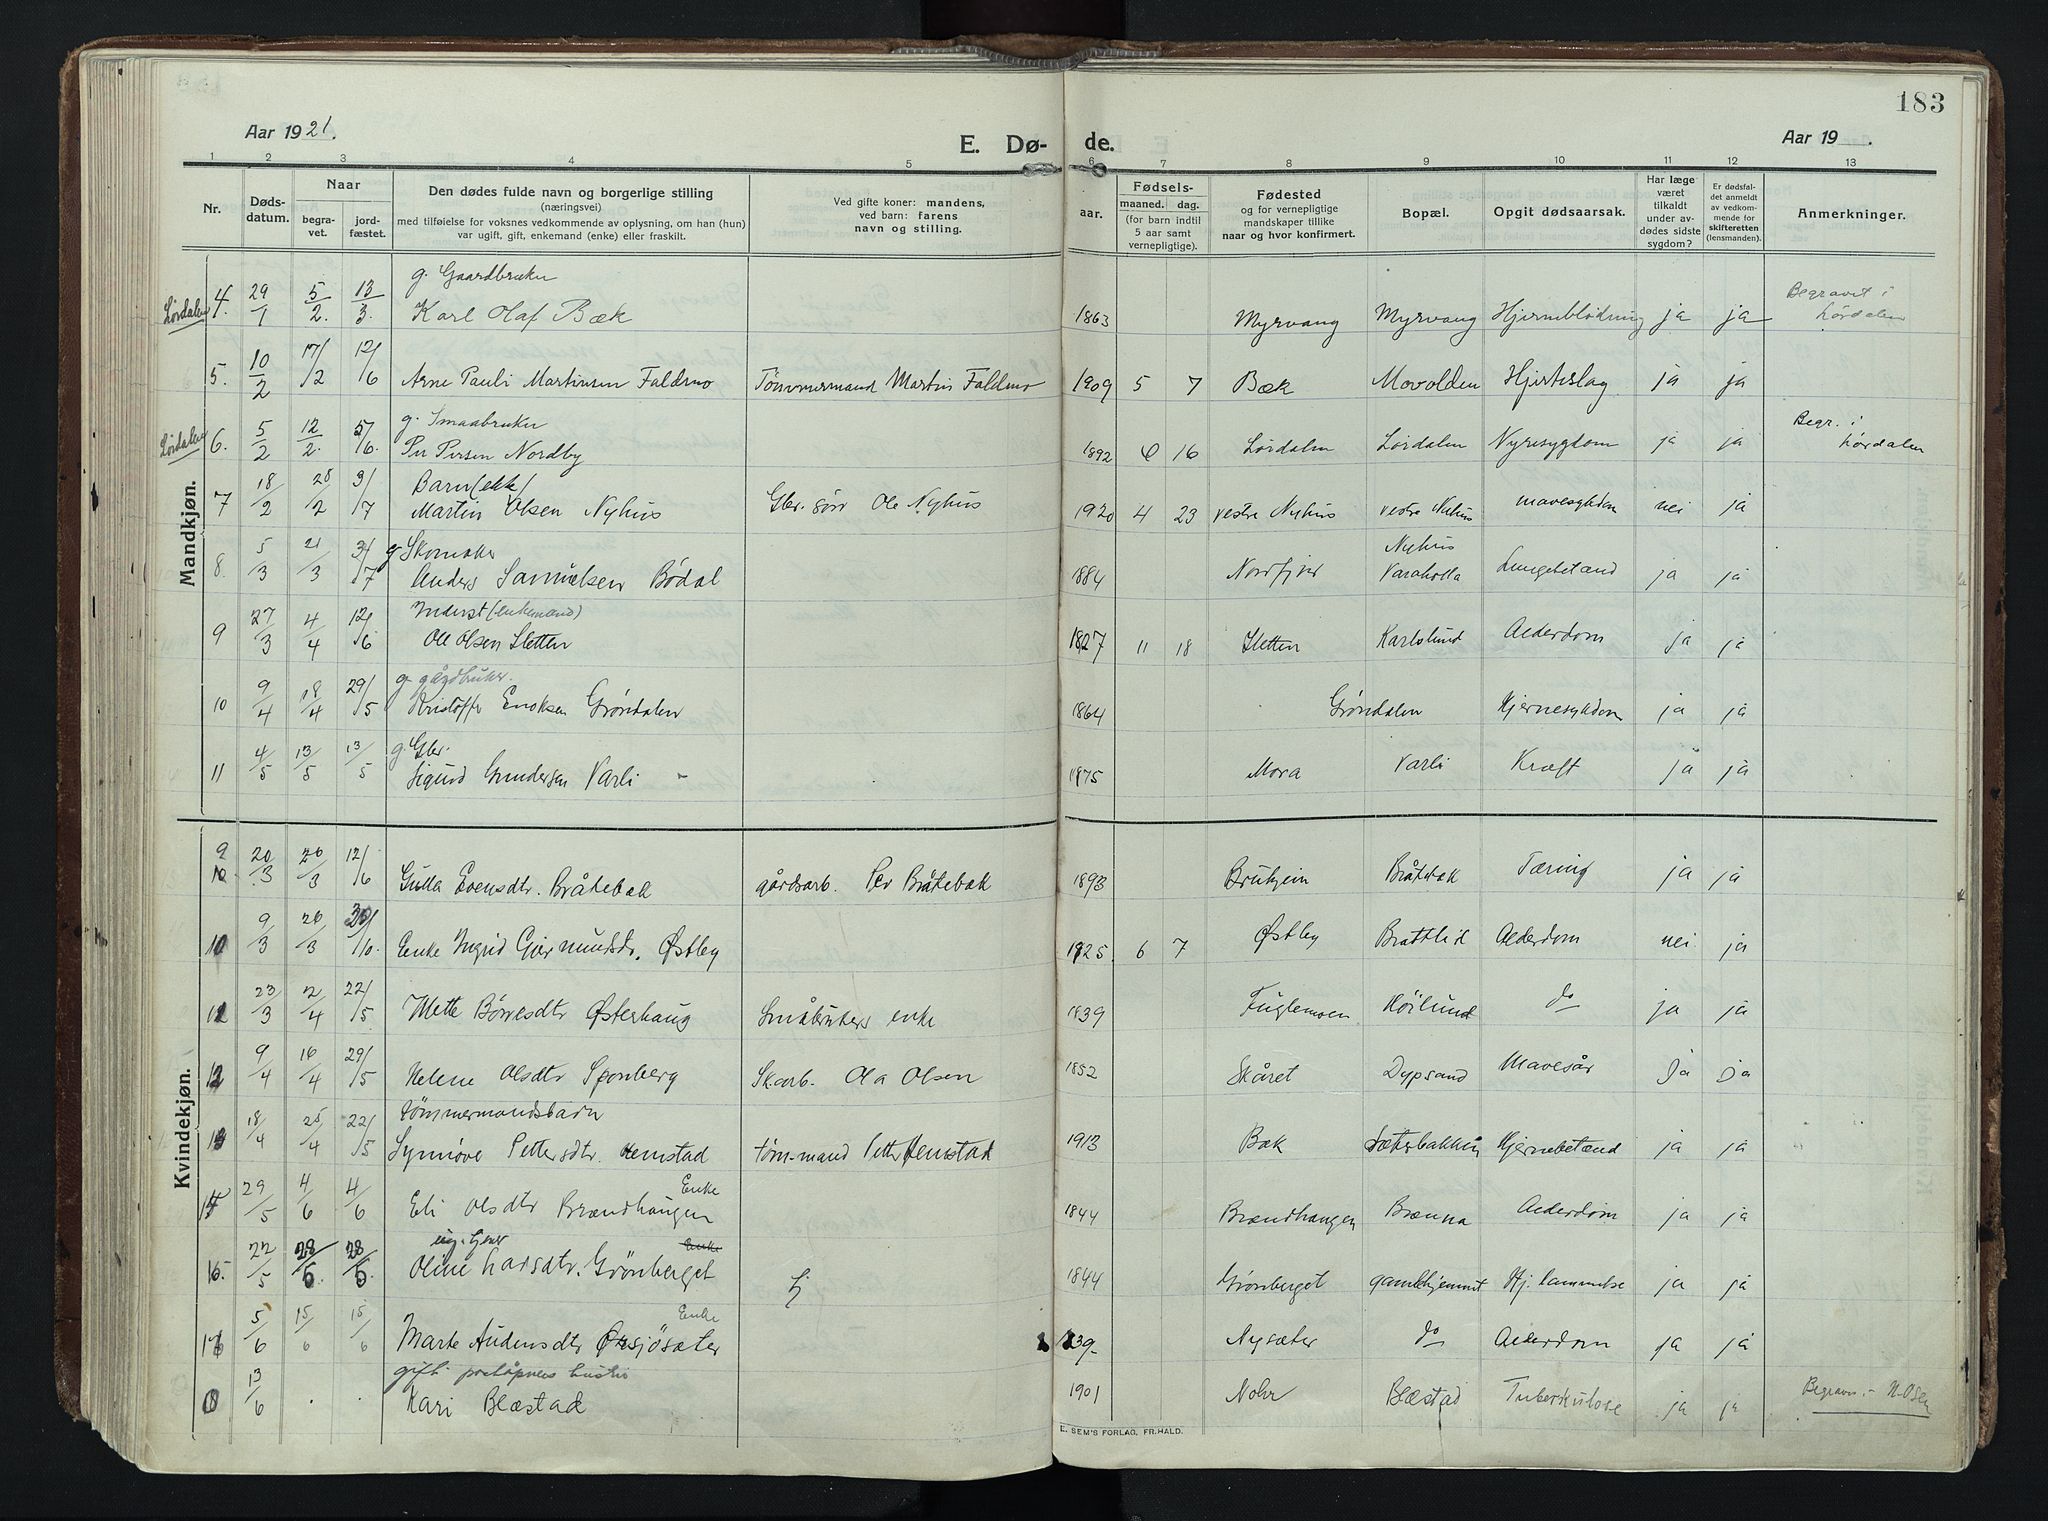 183
Aar 1921.
E. Dø- de.
Aar 19 .
1 2 3 4 5 6 7 8 9 10 11 12 13
Nr.
Døds-
datum.
Naar
begra-
vet.
jord-
fæstet.
Den dødes fulde navn og borgerlige stilling
(næringsvei)
med tilføielse for voksnes vedkommende av oplysning, om han (hun)
var ugift, gift, enkemand (enke) eller fraskilt.
Ved gifte koner: mandens,
ved barn: farens
navn og stilling.
Fødsels-
aar.
maaned. dag.
(for barn indtil
5 aar samt
vernepligtige).
Fødested
og for vernepligtige
mandskaper tillike
naar og hvor konfirmert.
Bopæl.
Opgit dødsaarsak.
Har læge
været
tilkaldt
under av-
dødes sidste
sygdom?
Er dødsfal-
det anmeldt
av vedkom-
mende for
skifteretten
(lensmanden).
Anmerkninger.
Mandkjøn.
g. Gaardbruker
Lørdalen 4. 29/1 5/2. 13/3. Karl Olaf Bæk 1863 Myrvang Myrvang Hjerneblødning ja ja Begravet i Lørdalen
5. 10/2 17/2 12/6 Arne Pauli Martinsen Faldmo Tømmermand Martin Faldmo 1909 5 7 Bæk Movolden Hjerteslag ja ja
g. Smaabruker
Lørdalen 6. 5/2 12/2. 5/6. Per Persen Nordby 1892 6 16 Lørdalen Lørdalen Nyresygdom ja ja Begr. i Lørdalen
Barn (ekk)
7 18/2 28/2 3/7 Martin Olsen Nyhus Gbr. sønn Ole Nyhus 1920 4 23 vestre Nyhus vestre Nyhus mavesykdom nei ja
g Skomaker Nyhus
8. 5/3 21/3 3/7 Anders Samuelsen Bødal 1884 Nordfjord Varaholla Lungebetænd ja ja
Inderst (enkemand)
9 27/3 4/4 12/6 Ole Olsen Sletten 1827 11 18 Sletten Karlslund Alderdom ja ja
g. gårdbruker.
10 9/4 18/4 29/5 Kristoffer Enoksen Grøndalen 1864 Grøndalen Hjernesykdom ja ja
g. Gbr.
11 4/5 13/5 13/5 Sigurd Gundersen Varli 1875 Mora Varli Kræft ja ja
Kvindekjøn.
9 20/3 26/3 12/6 Gulla Evensdtr. Bråtebæk gårdsarb. Per Bråtebæk 1893 Brukjein Bråtebæk Tæring ja ja
10 9/3 26/3 Enke Ingrid Geirmundsdr. Østby 1825 6 7 Østby Brattlid Alderdom nei ja
23/3 2/4 22/5 Mette Børresdtr Østerhaug Småbrukers enke 1839 Fuglemoen Høilund do ja ja
12 9/4 16/4 29/5 Helene Olsdtr Sponberg Sk.arb. Ola Olsen 1852 Skåret Dypsand Mavesår ja ja
tømmermandsbarn
13 18/4 25/4 22/5 Synnøve Pettersdtr. Hemstad tøm-mand Petter Hemstad 1913 Bæk Sæterbakken Hjernebetænd ja ja
Enke
14 29/5 4/6 4/6 Eli Olsdtr Brændhaugen 1844 Brændhaugen Brænna Alderdom ja ja
ug. tjener Enke
15. 22/5 28/5. 28/5. Oline Larsdtr. Grønberget 1844 Grønberget gamlehjemmet Hj. lammelse ja ja
Enke
5/6 15/6 15/6 Marte Audensdtr Øksjøsæter 1839 Nysæter do Alderdom ja ja
gift.
13/6 Kari Blæstad 1901 Nohr Blæstad Tuberkulose ja ja Begravn. N. Osen
E. SEM'S FORLAG, FR.HALD.